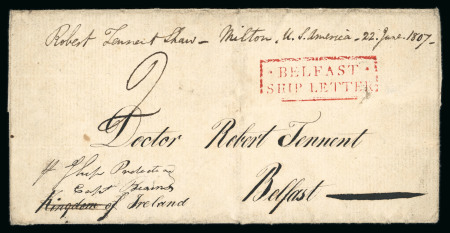 Robert Tennent Shaw – Milton, U.S. America – 22. June. 1807 –
BELFAST
SHIP LETTER
2
Doctor Robert Tennent
Ship
Capt
Belfast
Kingdom of Ireland